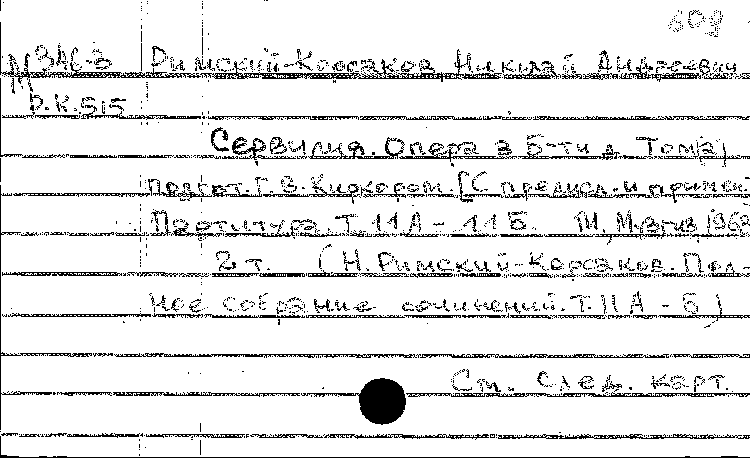 608
М ЗАб-3 Римский-Корсаков, Николай Андреевич
Р.К.515
Сервилия. Опера в 5-ти д. Том(а)
подгот. Г.В. Киркором. [С предисл. и примеч.
Партитура. Т. 11А - 11Б. М, Музгиз, 1962
2 т. (Н. Римский-Корсаков. Пол-
ное собрание сочинений. Т. 11А - Б)
См. след. карт.